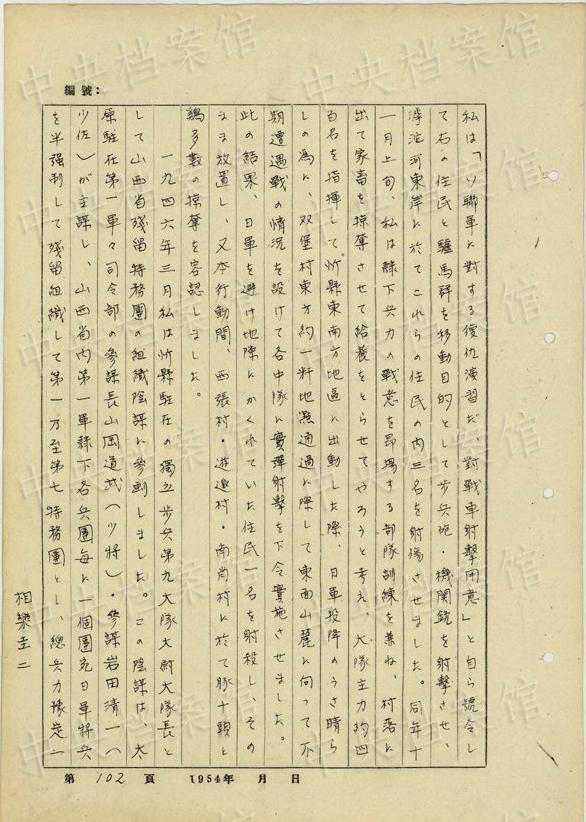 編號：
私は「ソ聯軍に対する復仇演習だ、對戰車射撃用意」と自ら號令し
て右の住民と驢馬群を移動目的として步兵砲・機関銃を射撃させ、
滹沱河東岸に於てこれらの住民の内三名を射傷させました。同年十
一月上旬、私は隷下兵力の戦意を昂揚する部隊訓練を兼ね、村落に
出て家畜を掠奪させて給養をとらせてやろうと考え、大隊主力約四
百名を指揮して忻縣東南方地區に出動した際、日軍投降のうさ晴ら
しの為に、双堡村東方約一粁地点通過に際して東西山麓に向って不
期遭遇戦の情況を設けて各中隊に實弾射撃を下令實施させました。
此の結果、日軍を避け地隙にかくれていた住民一名を射殺し、その
まま放置し、又本行動間、西張村・遊邀村・南肖村に於て豚十頭と
鶏多数の掠奪を容認しました。
一九四六年三月私は忻縣駐在の獨立步兵第九大隊大尉大隊長と
して山西省残留特務團の組織陰謀に参劃しました。この陰謀は、太
原駐在第一軍々司令部の参謀長山岡道武（少將）・参謀岩田清一（
少佐）が主謀し、山西省内第一軍隷下各兵團毎に一個團宛日軍將兵
を半强制して残留組織して第一乃至第七特務團とし、總兵力豫定一
相樂圭二
第 102 頁 1954年 月 日
中央档案馆